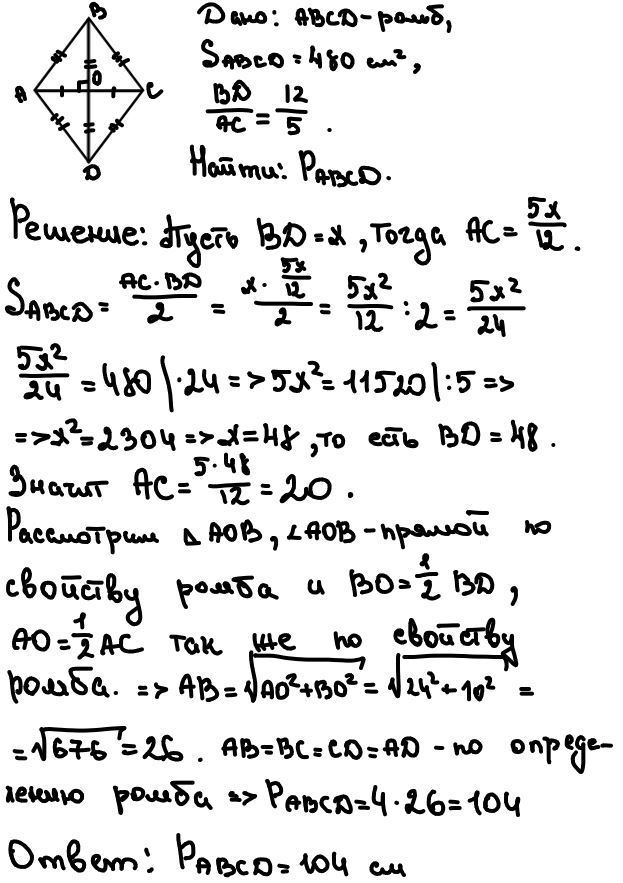 B
A O C
D
Дано: ABCD - ромб,
S_ABCD = 480 см²,
BD/AC = 12/5.
Найти: P_ABCD.
Решение: Пусть BD = x, тогда AC = 5x/12.
S_ABCD = AC · BD/2 = x · 5x/12/2 = 5x²/12 : 2 = 5x²/24
5x²/24 = 480 | · 24 => 5x² = 11520 | : 5 =>
=> x² = 2304 => x = 48, то есть BD = 48.
Значит AC = 5 · 48/12 = 20.
Рассмотрим △ AOB, ∠AOB - прямой по
свойству ромба и BO = 1/2 BD,
AO = 1/2 AC так же по свойству
ромба. => AB = √AO² + BO² = √24² + 10² =
= √676 = 26. AB = BC = CD = AD - по опреде-
лению ромба => P_ABCD = 4 · 26 = 104
Ответ: P_ABCD = 104 см